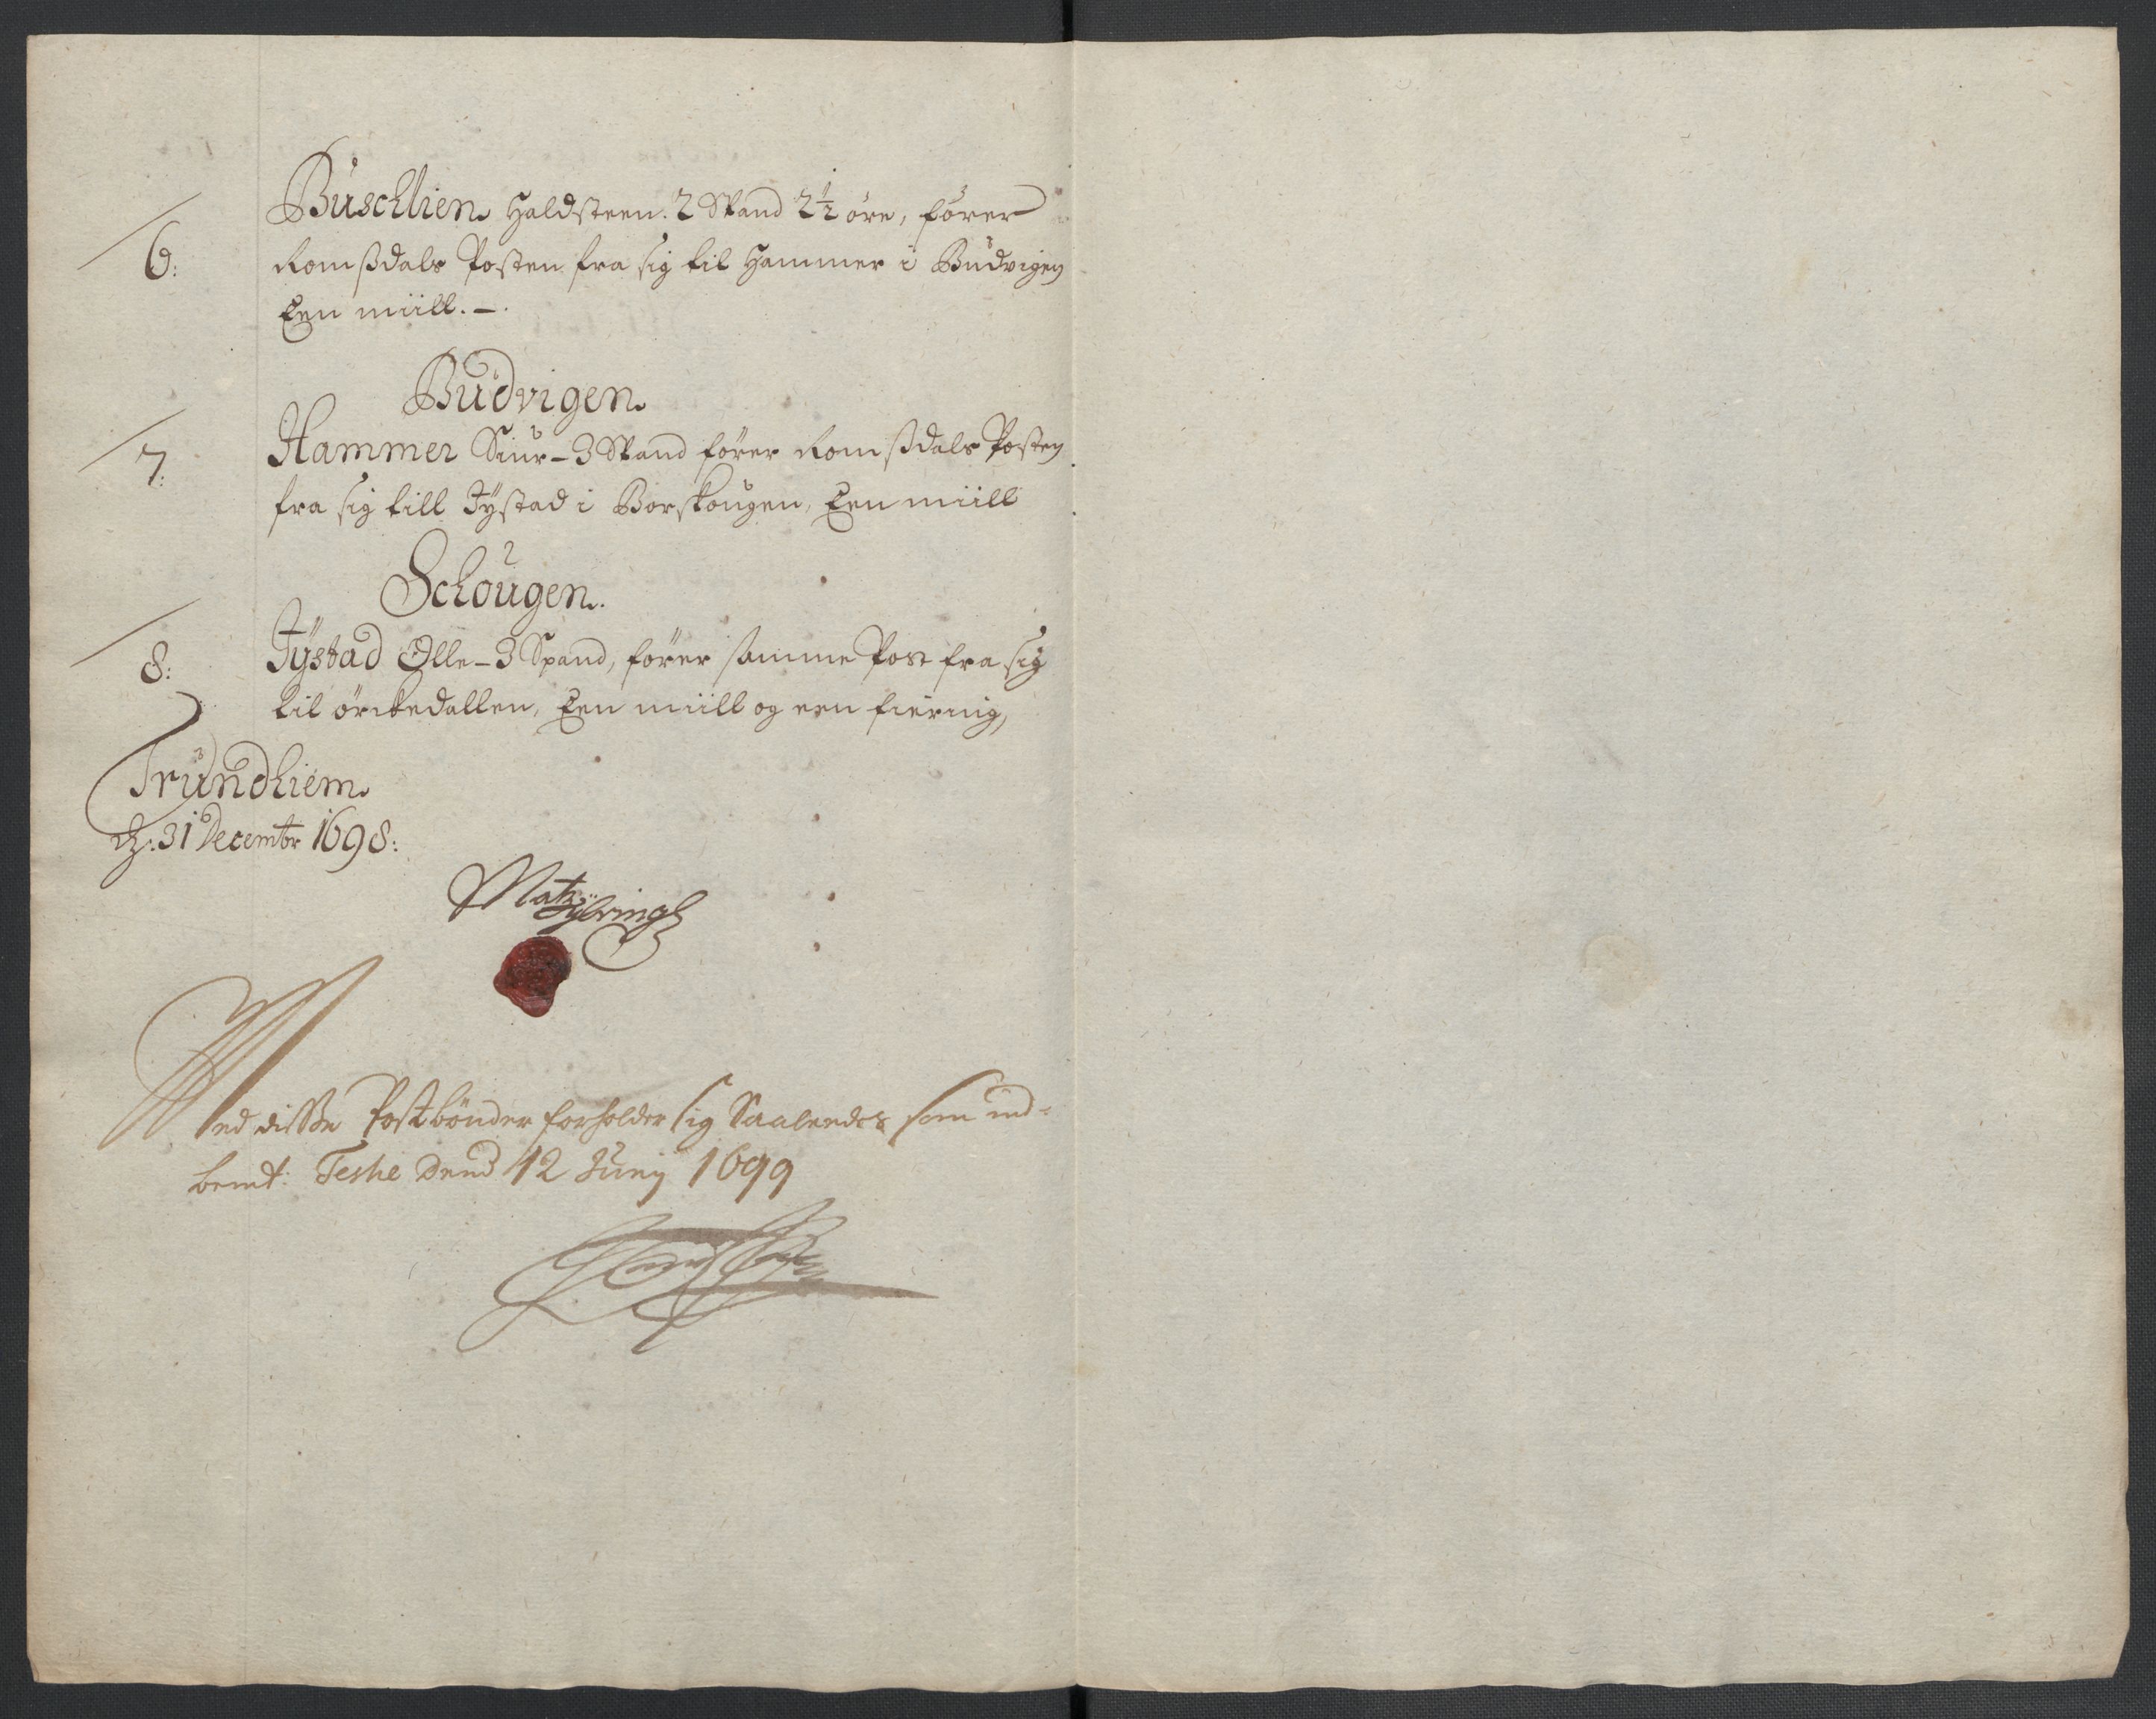 6: Buschlien Haldsteen. 2 Spand 2½ øre, fører
Romßdals Posten fra sig til Hammer i Budvigen
Een miill. –.
Budvigen
7: Hammer Siur – 3 Spand fører Romßdals Posten
fra sig till Jÿstad i Borskougen, Een miill
Schougen.
8: Jÿstad Olle – 3 Spand, fører samme Post fra sig
til ørckedallen, Een miill og een fiering,
Trundhiem
dz: 31 Decembr 1698:
Med disse Postbønder forholder sig Saaledes som ind-
bemt: Teste Dend 12 Junij 1699